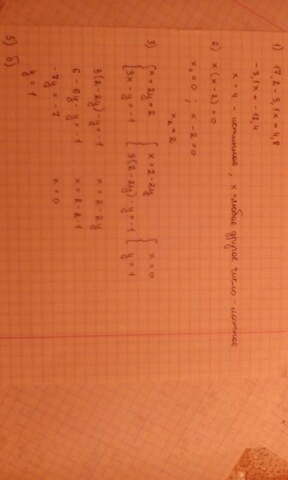 1) 17,2 - 3,1x = 4,8
-3,1x = -12,4
x = 4 - истинное, x = любое другое число - ложное
2) x(x-2)=0
x₁=0 ; x-2=0
x₂=2
3) { x+2y=2 { x=2-2y { x=0
{ 3x-y=-1 { 3(2-2y)-y=-1 { y=1
3(2-2y)-y=-1 x=2-2y
6-6y-y=-1 x=2-2·1
-7y=-7 x=0
y=1
5) б)